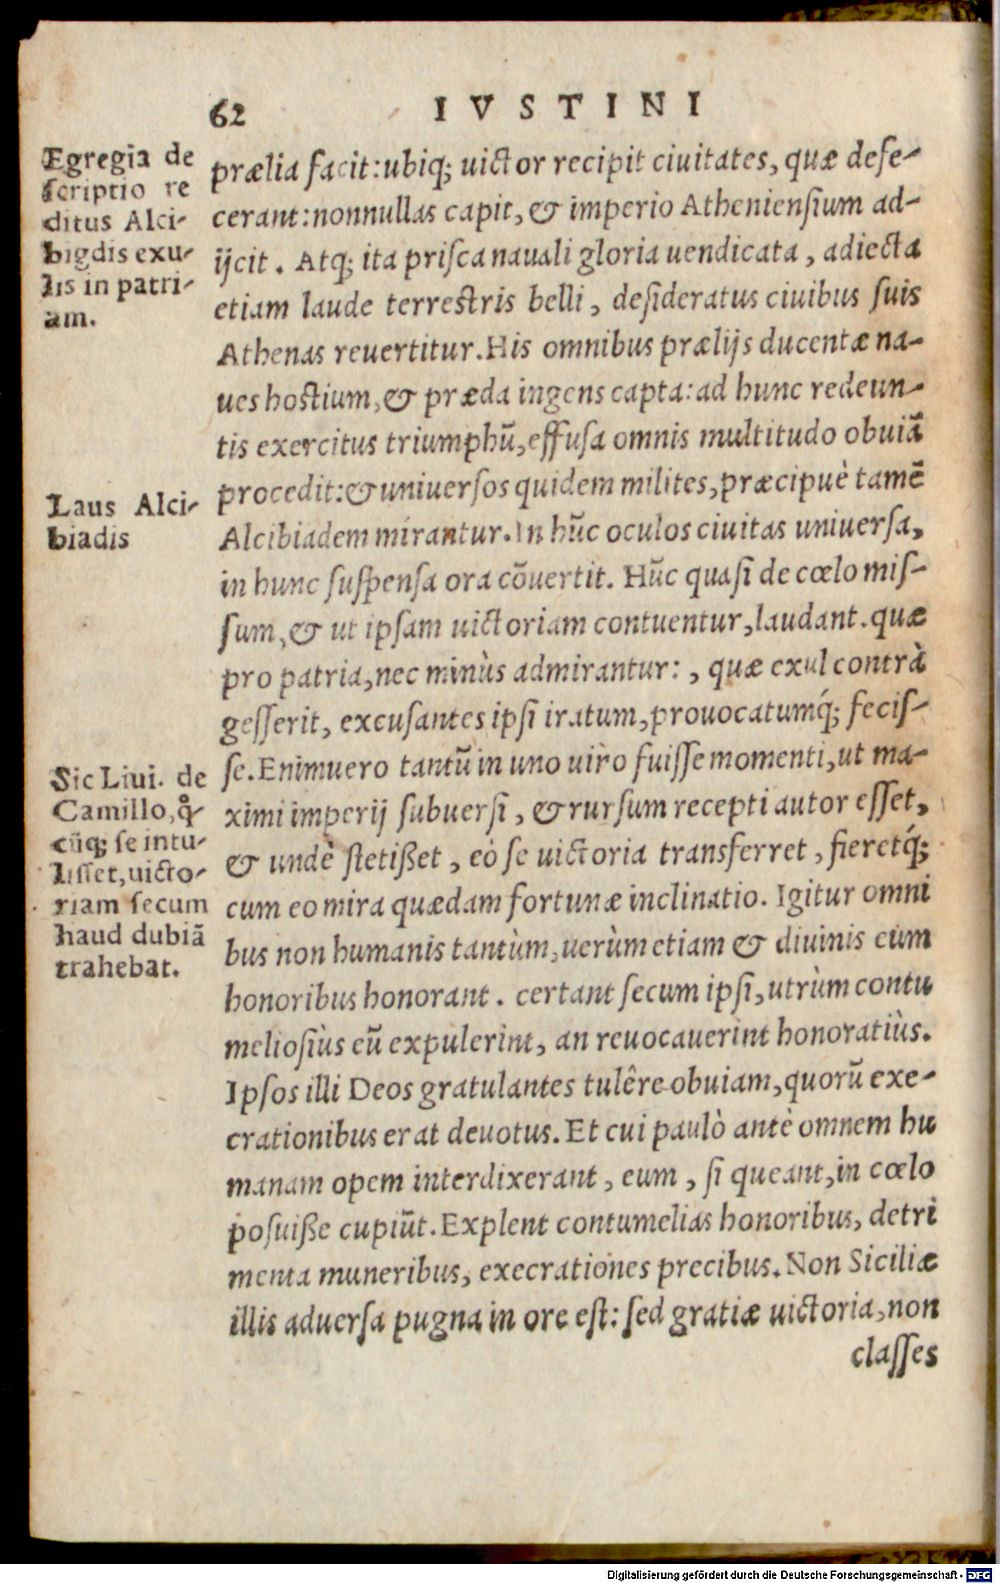 62 IVSTINI
Egregia de
scriptio re
ditus Alci-
bigdis exu-
lis in patri-
am.
prælia facit: ubiq; uictor recipit ciuitates, quæ defe-
cerant: nonnullas capit, & imperio Atheniensium ad-
ijcit. Atq; ita prisca nauali gloria uendicata, adiecta
etiam laude terrestris belli, desideratus ciuibus suis
Athenas reuertitur. His omnibus prælijs ducentæ na-
ues hostium, & præda ingens capta: ad hunc redeun-
tis exercitus triumphū, effusa omnis multitudo obuiā
procedit: & uniuersos quidem milites, præcipuè tamē
Laus Alci-
biadis
Alcibiadem mirantur. In hūc oculos ciuitas uniuersa,
in hunc suspensa ora cōuertit. Hūc quasi de cœlo mis-
sum, & ut ipsam uictoriam contuentur, laudant. quæ
pro patria, nec minùs admirantur: , quæ exul contrà
gesserit, excusantes ipsi iratum, prouocatumq́; fecis-
se. Enimuero tantū in uno uiro fuisse momenti, ut ma-
ximi imperij subuersi, & rursum recepti autor esset,
& undè stetißet, eò se uictoria transferret, fieretq́;
cum eo mira quædam fortunæ inclinatio. Igitur omni
bus non humanis tantùm, uerùm etiam & diuinis eum
Sic Liui. de
Camillo, qͦ-
cūq; se intu-
lisset, uicto-
riam secum
haud dubiā
trahebat.
honoribus honorant. certant secum ipsi, utrùm contu
meliosiùs eū expulerint, an reuocauerint honoratiùs.
Ipsos illi Deos gratulantes tulêre obuiam, quorū exe-
crationibus erat deuotus. Et cui paulò antè omnem hu
manam opem interdixerant, eum, si queant, in cœlo
posuiße cupiūt. Explent contumelias honoribus, detri
menta muneribus, execrationes precibus. Non Siciliæ
illis aduersa pugna in ore est: sed gratiæ uictoria, non
classes
Digitalisierung gefördert durch die Deutsche Forschungsgemeinschaft - DFG